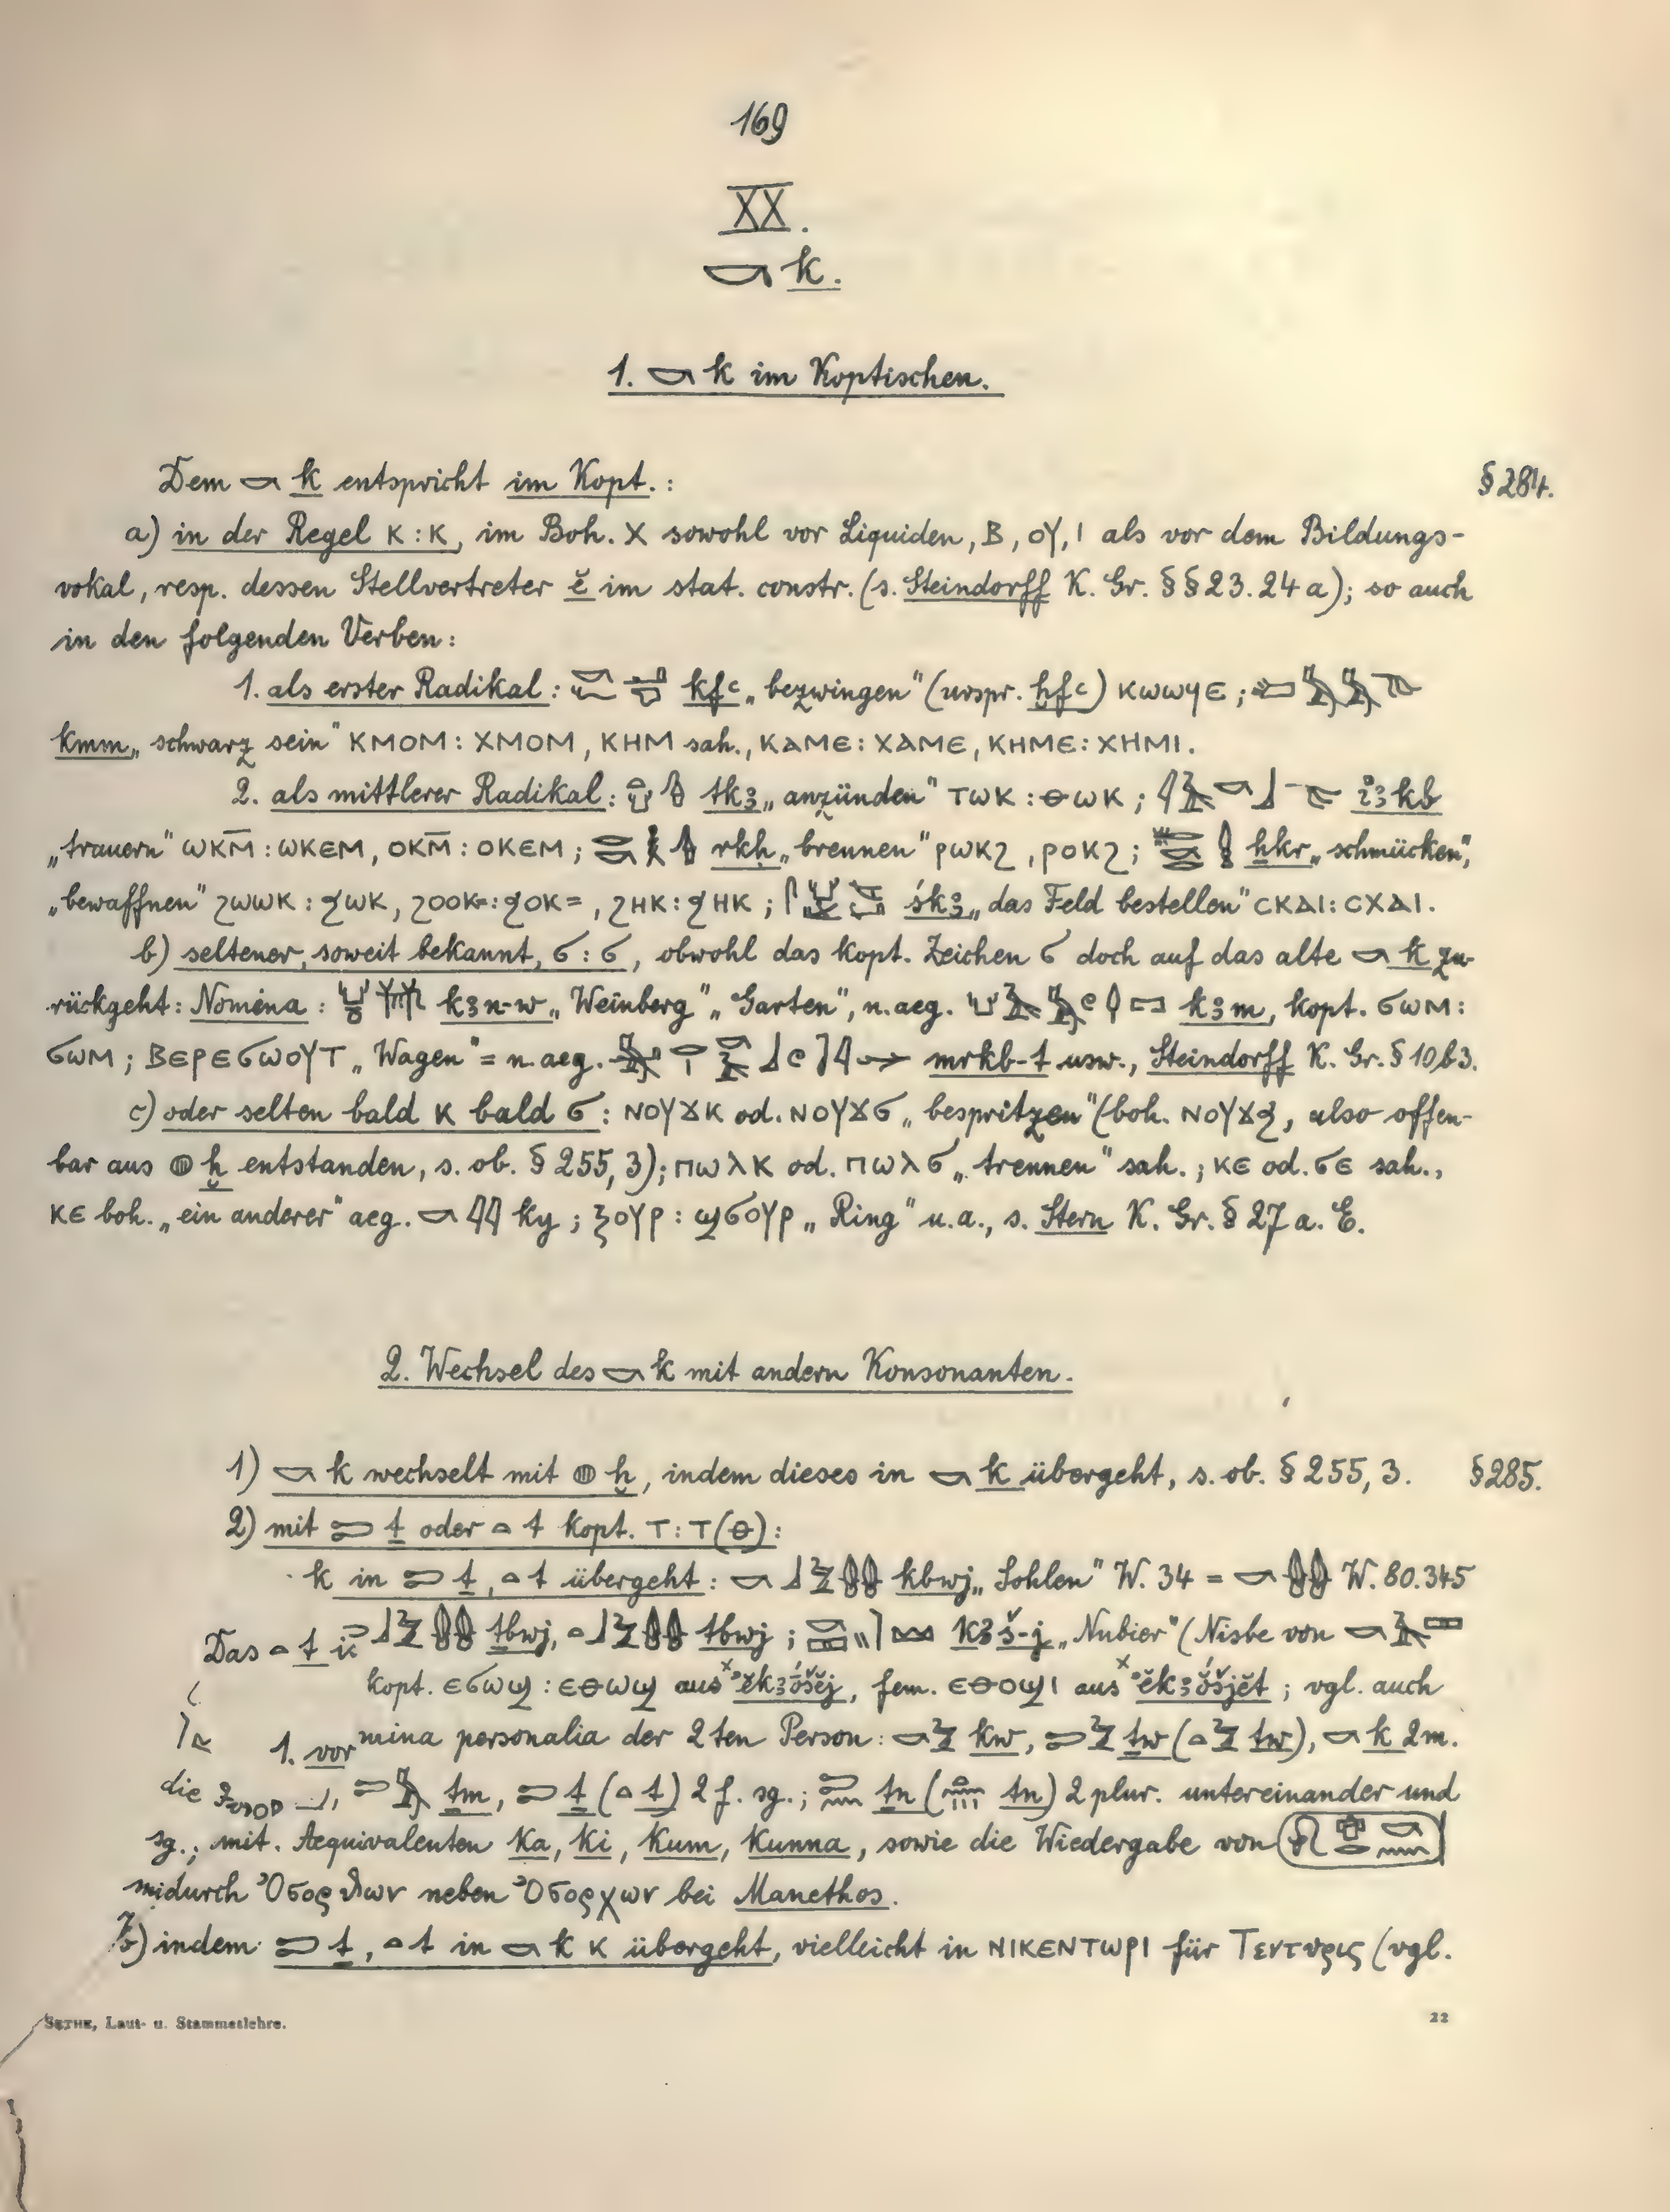 169
XX.
𓎡 k.
1. 𓎡 k im Koptischen.
Dem 𓎡 k entspricht im Kopt. : § 284.
a) in der Regel ⲕ : ⲕ, im Boh. ⲭ sowohl vor Liquiden, ⲃ, ⲟⲩ, ⲓ als vor dem Bildungs-
vokal, resp. dessen Stellvertreter ĕ im stat. constr. (s. Steindorff K. Gr. §§ 23. 24 a); so auch
in den folgenden Verben:
1. als erster Radikal: kfꜥ „bezwingen" (urspr. ḫfꜥ) ⲕⲱⲱϥⲉ ;
kmm „schwarz sein" ⲕⲙⲟⲙ : ⲭⲙⲟⲙ, ⲕⲏⲙ sah., ⲕⲁⲙⲉ : ⲭⲁⲙⲉ, ⲕⲏⲙⲉ : ⲭⲏⲙⲓ.
2. als mittlerer Radikal: tkꜣ „anzünden" ⲧⲱⲕ : ⲑⲱⲕ ; iꜣkb
„trauern" ⲱⲕⲙ̅ : ⲱⲕⲉⲙ, ⲟⲕⲙ̅ : ⲟⲕⲉⲙ ; rkḥ „brennen" ⲣⲱⲕϩ, ⲣⲟⲕϩ ; ḫkr „schmücken",
„bewaffnen" ϩⲱⲱⲕ : ϧⲱⲕ, ϩⲟⲟⲕ= : ϧⲟⲕ=, ϩⲏⲕ : ϧⲏⲕ ; śkꜣ „das Feld bestellen" ⲥⲕⲁⲓ : ⲥⲭⲁⲓ.
b) seltener, soweit bekannt, ϭ : ϭ, obwohl das kopt. Zeichen ϭ doch auf das alte 𓎡 k zu-
rückgeht: Nomina : kꜣn-w „Weinberg" „Garten", n.aeg. kꜣm, kopt. ϭⲱⲙ :
ϭⲱⲙ ; ⲃⲉⲣⲉϭⲱⲟⲩⲧ „Wagen" = n.aeg. mrkb-t usw., Steindorff K. Gr. § 10 b 3.
c) oder selten bald ⲕ bald ϭ : ⲛⲟⲩϫⲕ od. ⲛⲟⲩϫϭ „bespritzen" (boh. ⲛⲟⲩϫϧ, also offen-
bar aus 𓐍 ḫ entstanden, s. ob. § 255, 3); ⲡⲱⲗⲕ od. ⲡⲱⲗϭ „trennen" sah. ; ⲕⲉ od. ϭⲉ sah.,
ⲕⲉ boh. „ein anderer" aeg. 𓎡𓇌 ky ; ⲝⲟⲩⲣ : ϣϭⲟⲩⲣ „Ring" u.a., s. Stern K. Gr. § 27 a. E.
2. Wechsel des 𓎡 k mit andern Konsonanten.
1) 𓎡 k wechselt mit 𓐍 ḫ, indem dieses in 𓎡 k übergeht, s. ob. § 255, 3. § 285.
2) mit 𓍿 ṯ oder 𓏏 t kopt. ⲧ : ⲧ (ⲑ) :
k in 𓍿 ṯ, 𓏏 t übergeht : kbwj „Sohlen" W. 34 = W. 80. 345
Das 𓏏 t ṯbwj, tbwj ; kꜣš-j „Nubier" (Nisbe von
kopt. ⲉϭⲱϣ : ⲉⲑⲱϣ aus ĕkꜣṓšĕj, fem. ⲉⲑⲟϣⲓ aus ĕkꜣóšjĕt ; vgl. auch
1. vor mina personalia der 2ten Person: kw, ṯw (tw), 𓎡 k 2 m.
die ṯm, 𓍿 ṯ (𓏏 t) 2 f. sg. ; ṯn (tn) 2 plur. untereinander und
sg. ; mit. Aequivalenten Ka, Ki, Kum, Kunna, sowie die Wiedergabe von
durch Ὀσορθων neben Ὀσορχων bei Manethos.
b) indem 𓍿 ṯ, 𓏏 t in 𓎡 k ⲕ übergeht, vielleicht in ⲛⲓⲕⲉⲛⲧⲱⲣⲓ für Τεντυρις (vgl.
SETHE, Laut- u. Stammeslehre. 22